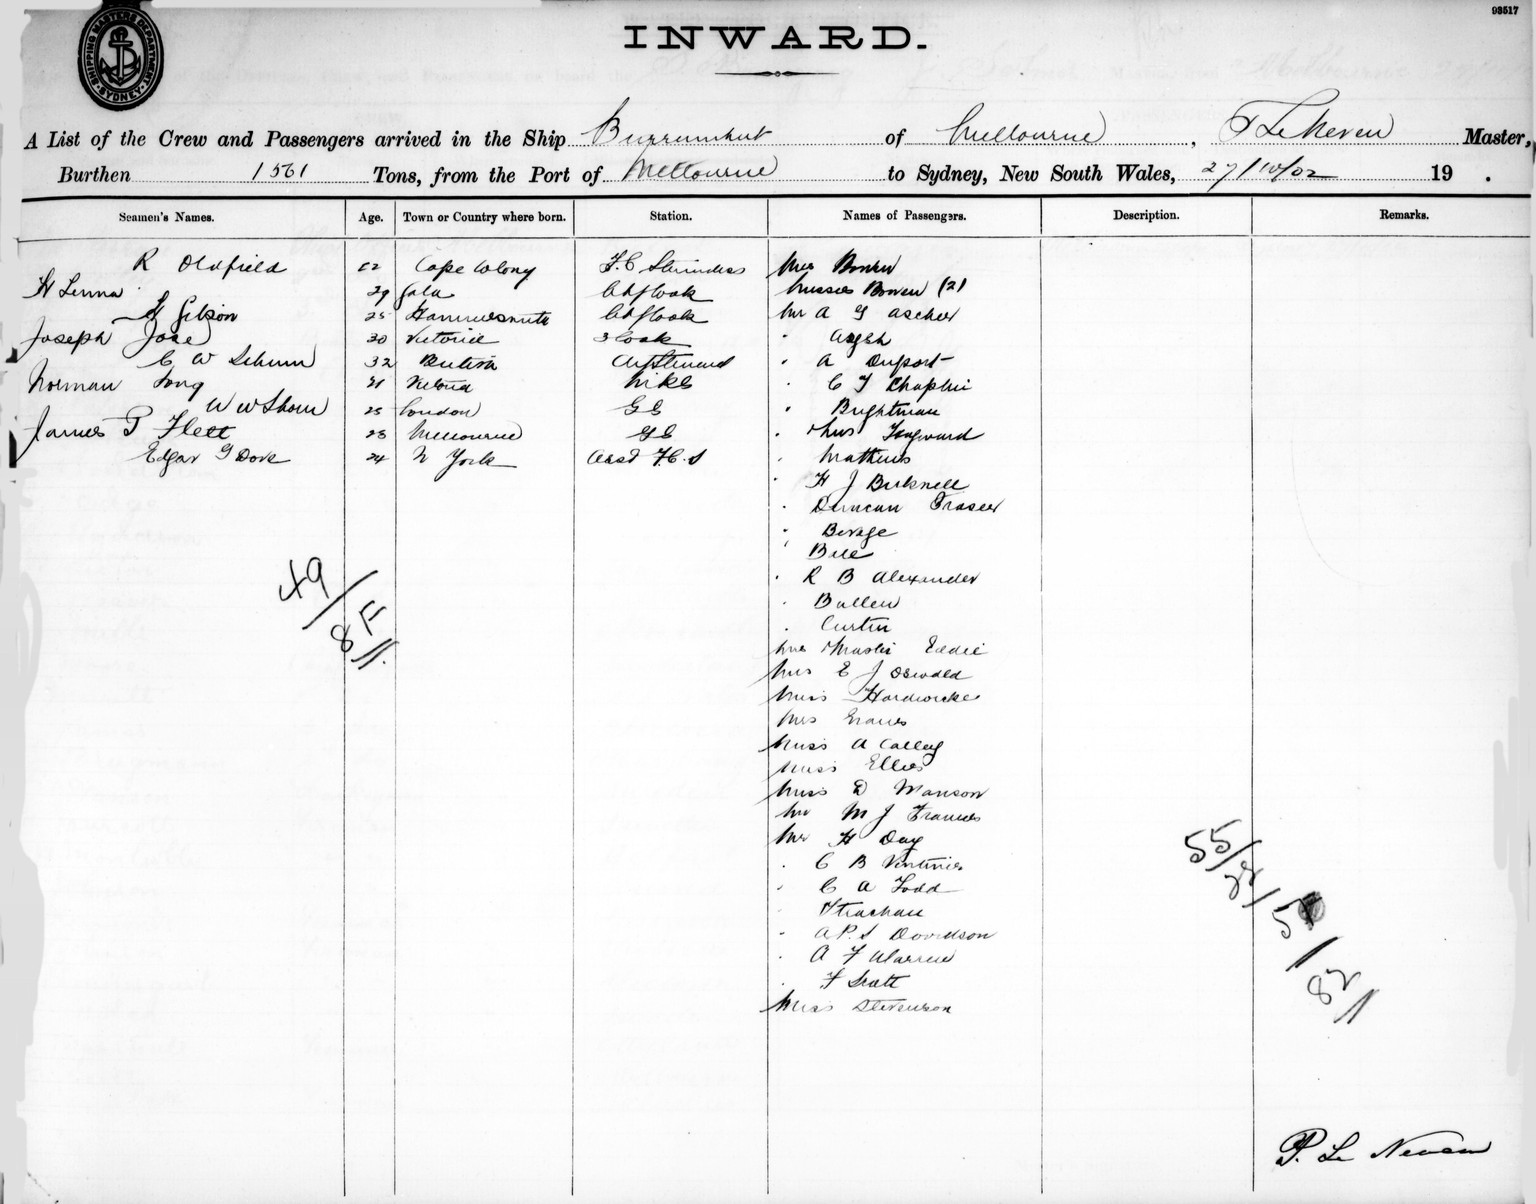 98517
SHIPPING MASTERS DEPARTMENT SYDNEY
INWARD.
A List of the Crew and Passengers arrived in the Ship Burrumbeet of Melbourne, P Le Neveu Master,
Burthen 1561 Tons, from the Port of Melbourne to Sydney, New South Wales, 27/10/02 19 .
Seamen's Names. Age. Town or Country where born. Station. Names of Passengers. Description. Remarks.
R Oldfield Cape Colony F.C. Mrs Bowen
H 29 Misses Bowen (2)
H Gibson 25 Hammersmith Mr A G Ascher
Joseph Jose 30 Victoria 3 Cook
C W 32 British " A Duport
Norman Long 21 Victoria " C T Chaplin
W W 25 London GS " Brightman
James P Flett 23 Melbourne GS " Mrs
Edgar G Dove 24 N York Asst F.C.S " Mathews
" H J Bicknell
" Duncan Fraser
"
" Bell
" R B Alexander
" Bullen
" Curtin
Mrs Master Eddie
Mrs E J Oswald
Miss Hardwicke
Mrs
Miss A Calley
Miss Ellis
Miss D Manson
Mr M J Frances
Mr H Day
" C B
" C A Todd
" Strachan
" A.P.S Davidson
" A F Warren
" F Scott
Miss Stevenson
49/8
55/
82
P. Le Neveu